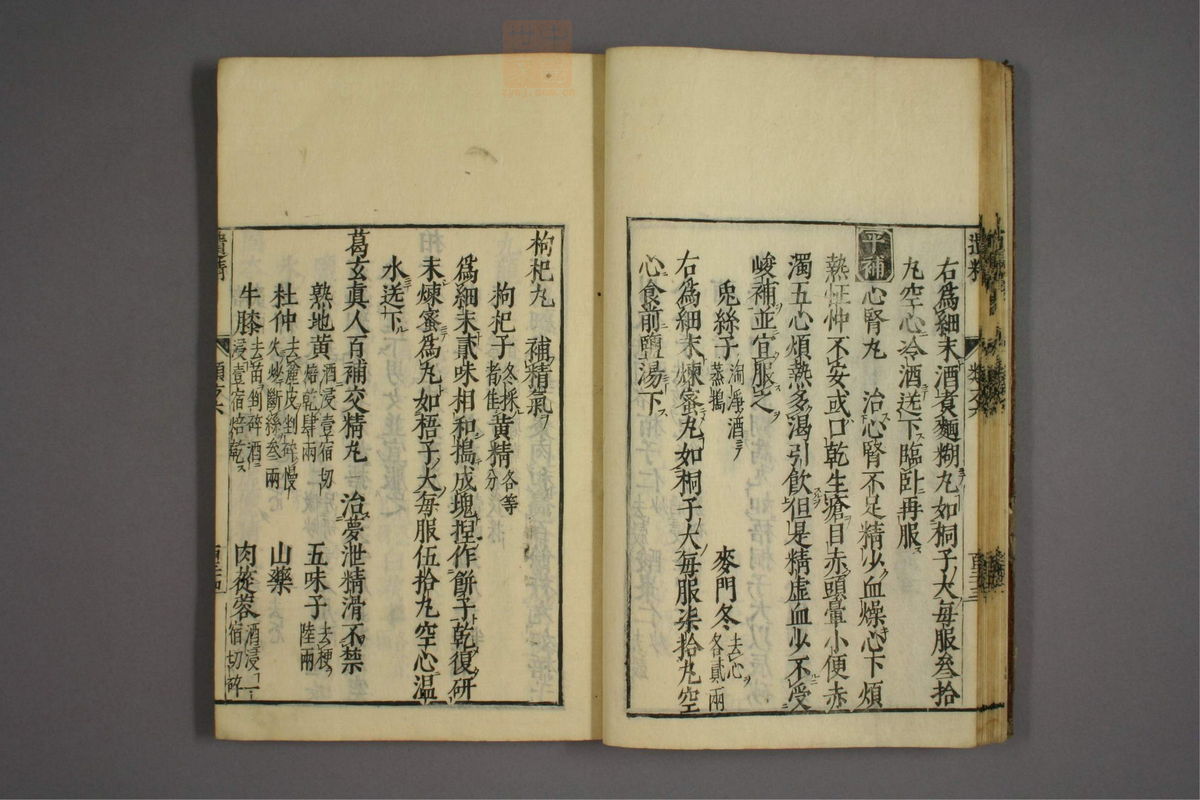 右爲細末酒煮麵糊丸如桐子大每服叄拾
丸空心冷酒送下臨臥再服
平補
心腎丸 治心腎不足精少血燥心下煩
熱怔忡不安或口乾生瘡目赤頭暈小便赤
濁五心煩熱多渴引飲但是精虛血少不受
峻補並宜服之
兎絲子 淘淨酒蒸搗 麥門冬 去心各貳兩
右爲細末煉蜜丸如桐子大每服柒拾丸空
心食前鹽湯下
枸杞丸 補精氣
枸杞子 冬採者佳 黄精 各等分
爲細末貳味相和搗成塊捏作餅子乾復研
末煉蜜爲丸如梧子大每服伍拾丸空心温
水送下
葛玄眞人百補交精丸 治夢泄精滑不禁
熟地黄 酒浸壹宿切焙乾肆兩 五味子 去梗陸兩
杜仲 去麄皮剉碎慢火炒斷絲叄兩 山藥
牛膝 去苗剉碎酒浸壹宿焙乾 肉蓯蓉 酒浸一宿切碎
遺精 類之六